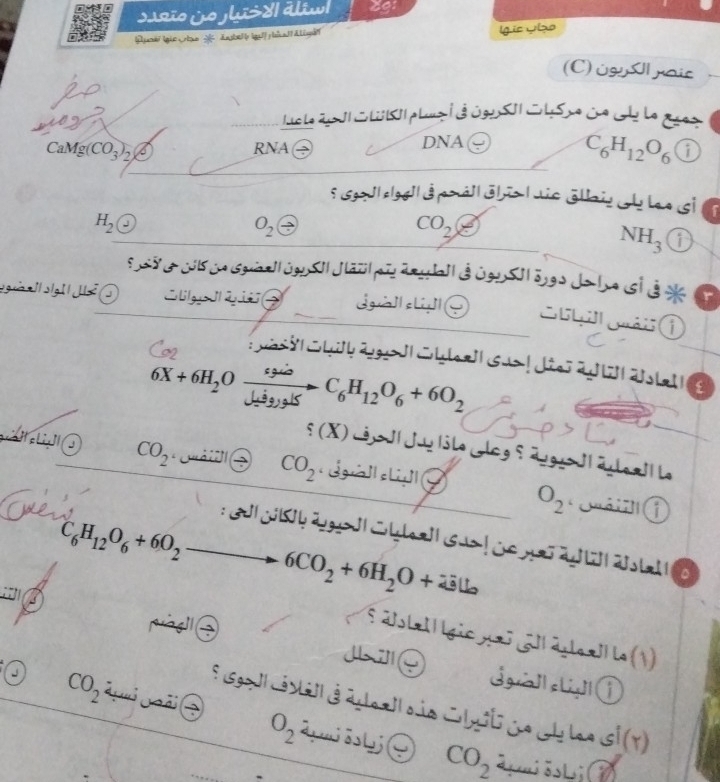 أولًا
أسئلة الاختيار من متعدد
مجاب عنها
الأسئلة المشار إليها بالعلامة ❋ مجاب عنها تفصيليًا
عنصر الكربون (C)
جميع ما يلى من مركبات الكربون فى أجسام الكائنات الحية ماعدا ............
أ C6H12O6 ب DNA ج RNA د CaMg(CO3)2
٢ أى مما يلى ينطلق عند احتراق الفحم فى الهواء الجوى ؟
أ NH3 ب CO2 ج O2 د H2
٣ ❋ فى أى مراحل دورة الكربون فى الطبيعة يتم انتقال الكربون العضوى من كائن حى لآخر ؟
أ تنفس النباتات ب البناء الضوئى ج تغذية الحيوانات د تحلل المواد العضوية
٤ المعادلة التالية تمثل إحدى العمليات الحيوية بالنبات الأخضر :
CO2
6X + 6H2O ضوء كلوروفيل → C6H12O6 + 6O2
ما العملية الحيوية ؟ وعلى ماذا يدل الحرف (X) ؟
أ التنفس ، O2 ب البناء الضوئى ، CO2 ج التنفس ، CO2 د البناء
٥ المعادلة التالية تعبر عن إحدى العمليات الحيوية بالكائن الحى :
تنفس
C6H12O6 + 6O2 → 6CO2 + 6H2O + طاقة
(١) ما العملية التى تعبر عنها المعادلة ؟
أ البناء الضوئى ب التحلل ج الهضم د
(٢) أى مما يلى من تأثيرات هذه العملية فى الغلاف الجوى ؟
أ زيادة نسبة CO2 ب زيادة نسبة O2 ج نقص نسبة CO2 د